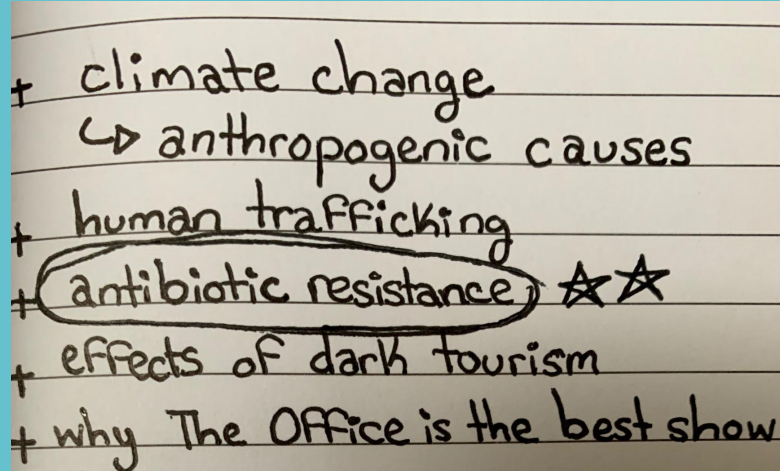 + climate change
↳ anthropogenic causes
+ human trafficking
+ antibiotic resistance ☆☆
+ effects of dark tourism
+ why The Office is the best show